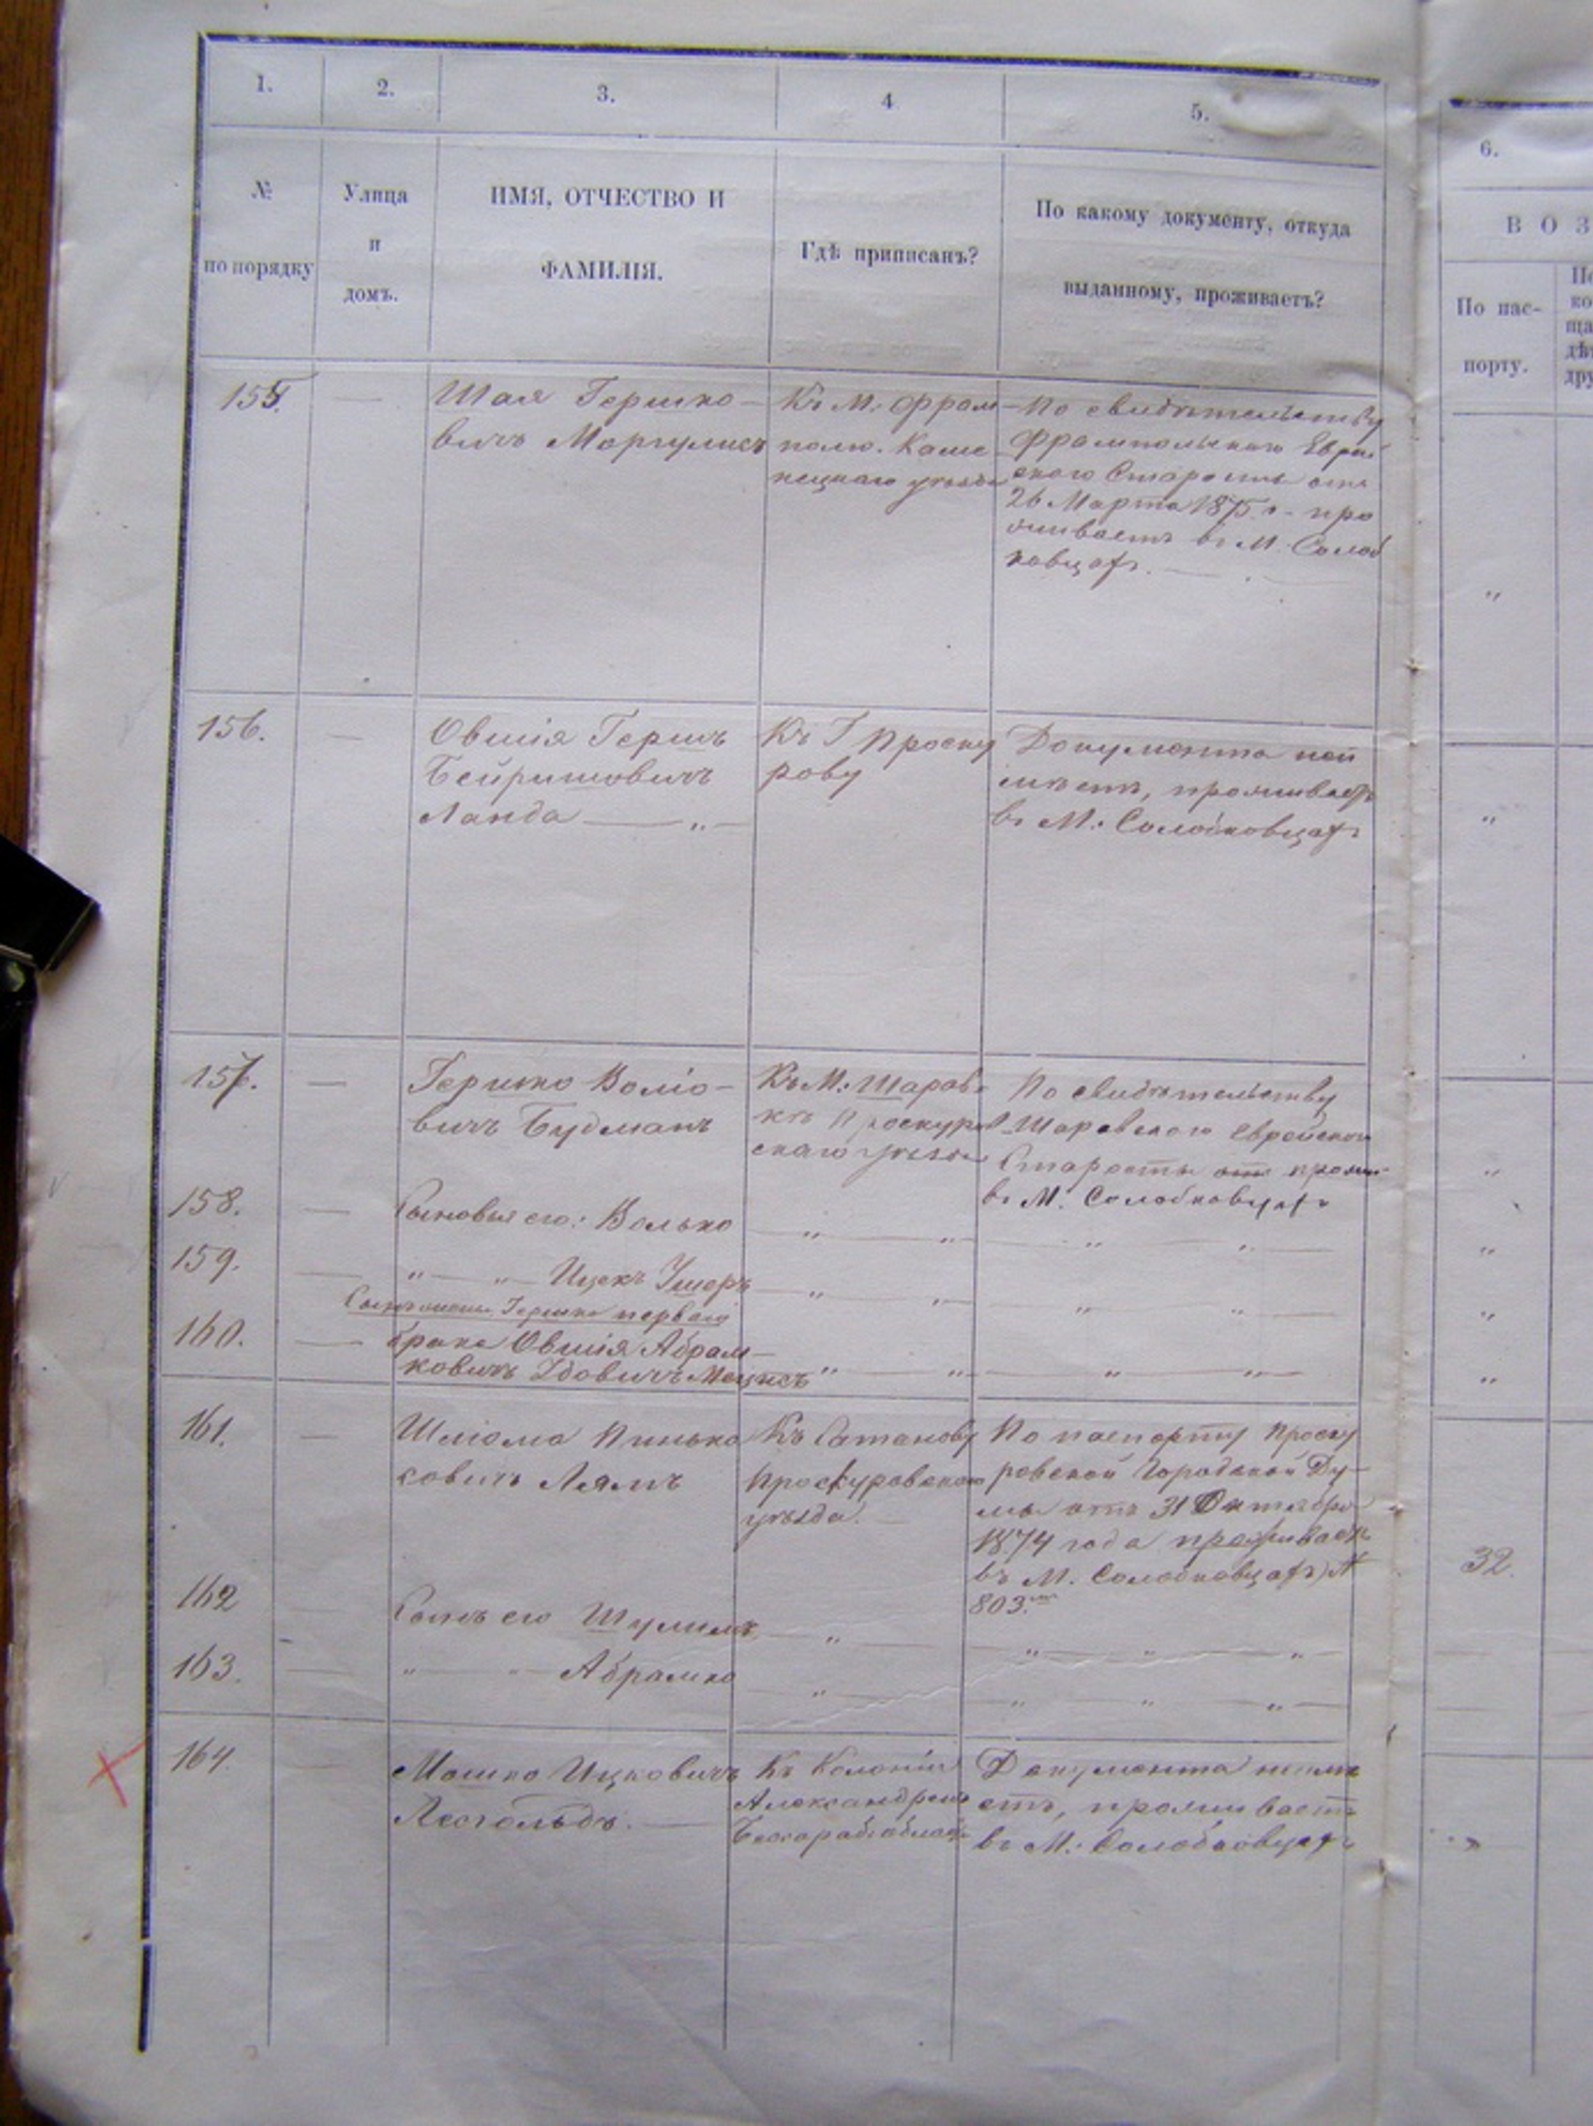 1. 2. 3. 4 5. 6.
№ по порядку
Улица и домъ.
ИМЯ, ОТЧЕСТВО И ФАМИЛІЯ.
Гдѣ приписанъ?
По какому документу, откуда выданному, проживаетъ?
В О З
По пас-
порту.
155.
Шая Гершко-
вичъ Моргулисъ
Къ М. Фрам-
полю. Каме
нецкаго уѣзда
По свидѣтельству
Фрампольскаго Еврей
скаго Старосты отъ
26 Марта 1875 г. про
живаетъ въ М. Солоб
ковцахъ.
„
156.
Овшія Гершъ
Бейришовичъ
Ланда — „ —
Къ Г Проску
рову
Документа неи
мѣетъ, проживаетъ
въ М. Солобковцахъ
„
157.
Гершко Воліо-
вичъ Будманъ
Къ М. Шаров
кѣ Проскуров
скаго уѣзда
По свидѣтельству
Шаровскаго Еврейскаго
Старосты отъ прожив-
въ М. Солобковцахъ
„
158.
Сыновья его: Волько
— „ — „ — „ — „ —
„
159.
„ — „ — Ицекъ Ушеръ
— „ — „ — „ — „ —
„
160.
Гершка перваго
брака Овшія Абрам-
ковичъ
„ — „ — „ — „ —
„
161.
Шліома Пинько
совичъ Лямъ
Къ Сатанову
Проскуровскаго
уѣзда. —
По паспорту Проску
ровской Городской Ду-
мы отъ 31 Октября
1874 года проживаетъ
въ М. Солобковцахъ №
803.
32.
162
Сынъ его Шулимъ
— „ — „ — „ — „ —
163.
„ — „ — Абрамко
— „ — „ — „ — „ —
164.
Мошко Ицковичъ
Лесгольдъ. —
Къ Колоніи
Александрен
Бессараб. област
Документа неимѣ
етъ, проживаетъ
въ М. Солобковцахъ
„